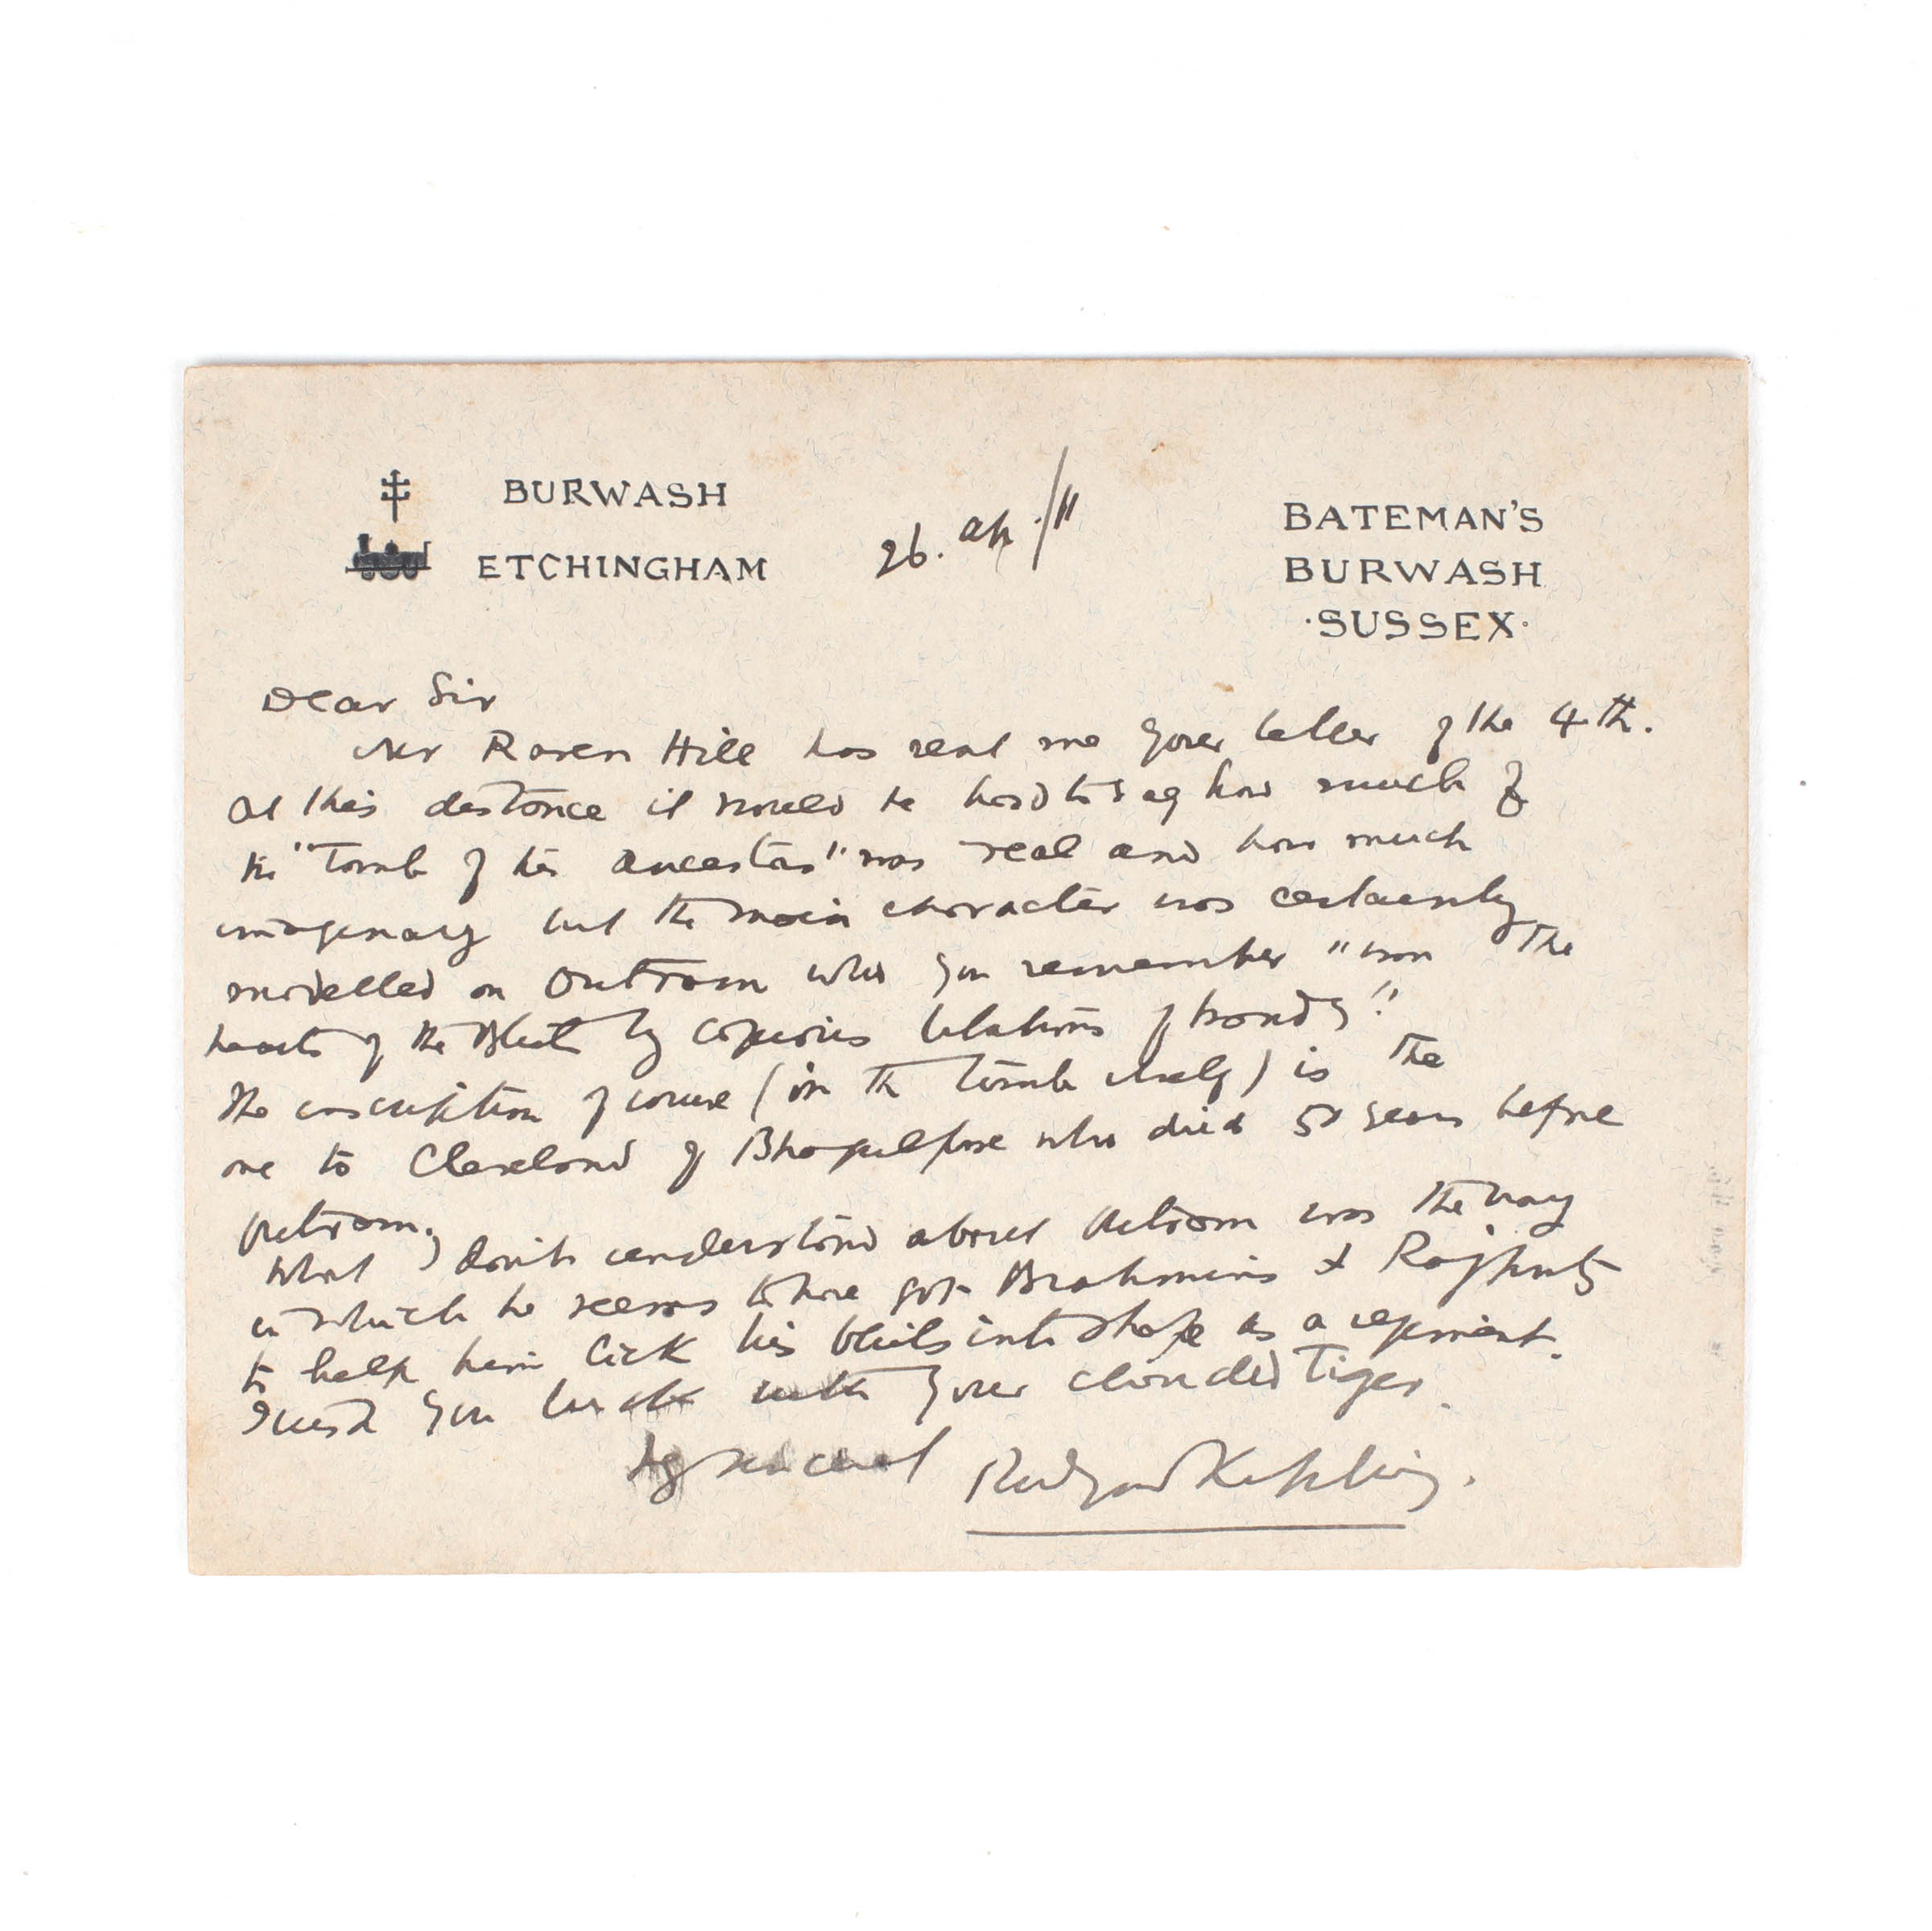 BURWASH
ETCHINGHAM
26. Ap. /11
BATEMAN'S
BURWASH
·SUSSEX·
Dear Sir
Mr Raven Hill has sent me your letter of the 4th.
At this distance it would be hard to say how much of
the "Tomb of his Ancestors" was real and how much
imaginary but the main character was certainly
modelled on Outram who you remember "won the
hearts of the Bhils by copious libations of brandy".
The inscription of course (in the Tomb itself) is the
one to Cleveland of Bhagulpore who died 50 years before
Outram.
What I don't understand about Outram was the way
in which he seems to have got Brahmins & Rajputs
to help him lick his bhils into shape as a regiment.
I wish you luck with your clouded Tiger.
Rudyard Kipling.